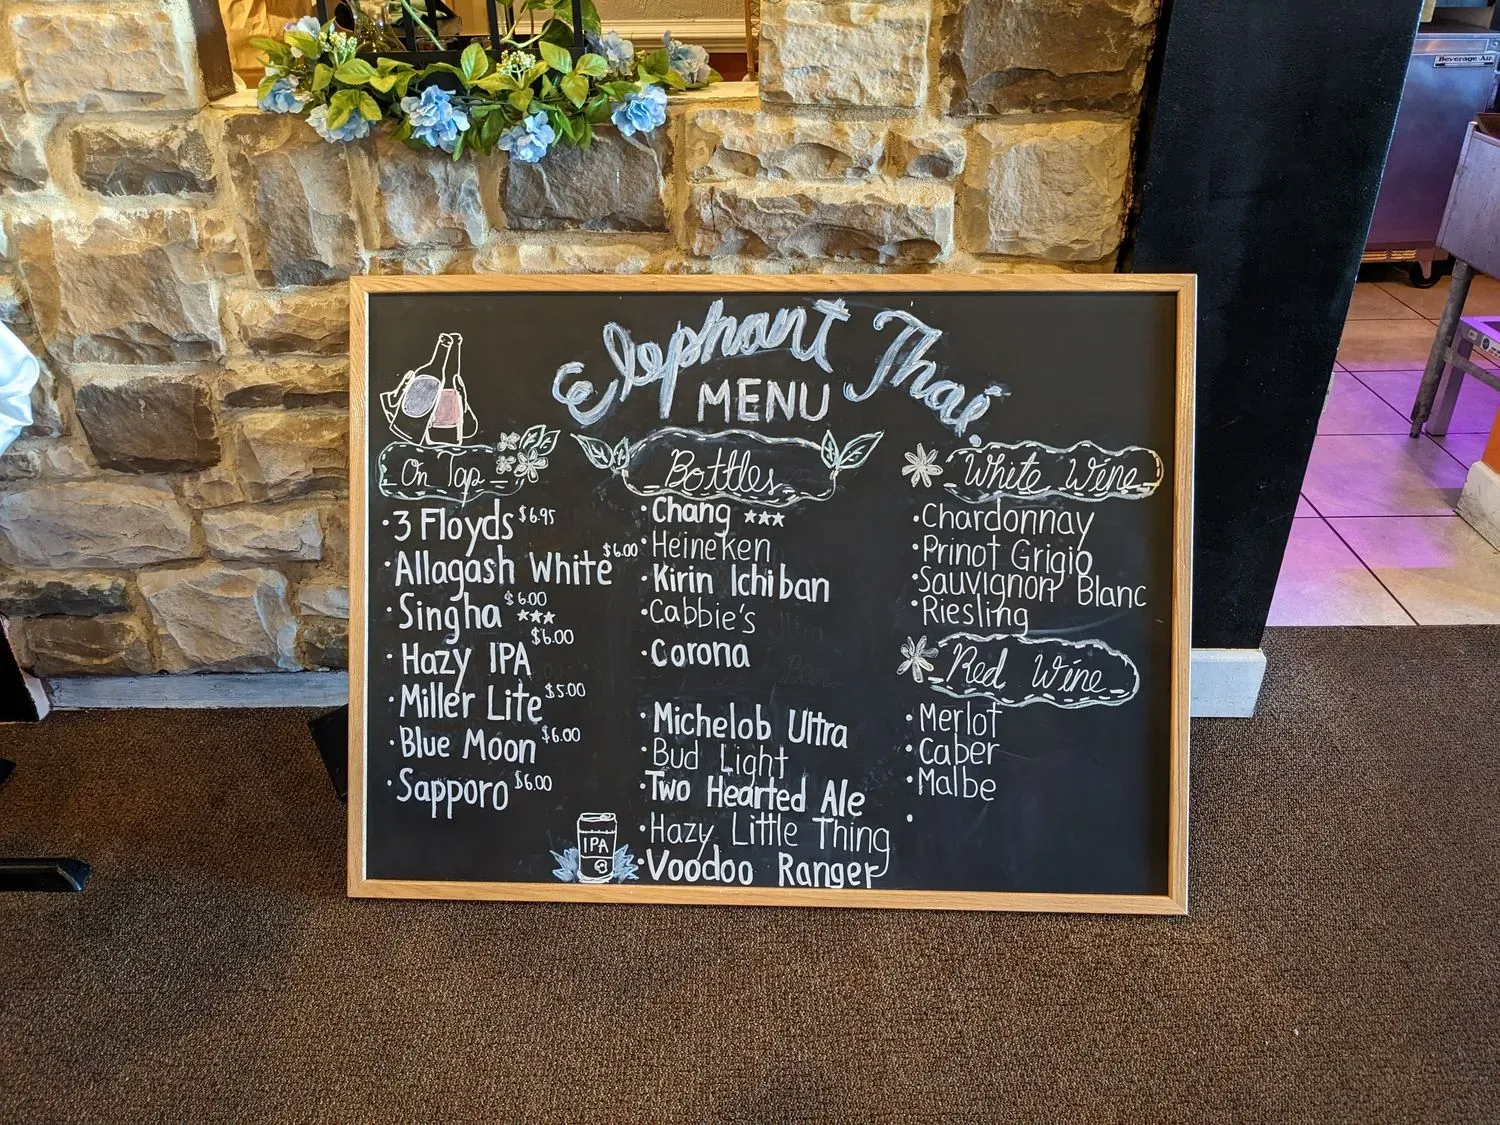 Beverage-Air
Elephant Thai
MENU
On Tap
• 3 Floyds $6.95
• Allagash White $6.00
• Singha $6.00 ***
• Hazy IPA $6.00
• Miller Lite $5.00
• Blue Moon $6.00
• Sapporo $6.00
IPA
Bottles
• Chang ***
• Heineken
• Kirin Ichiban
• Cabbie's
• Corona
• Michelob Ultra
• Bud Light
• Two Hearted Ale
• Hazy Little Thing
• Voodoo Ranger
White Wine
• Chardonnay
• Prinot Grigio
• Sauvignon Blanc
• Riesling
Red Wine
• Merlot
• Caber
• Malbe
•